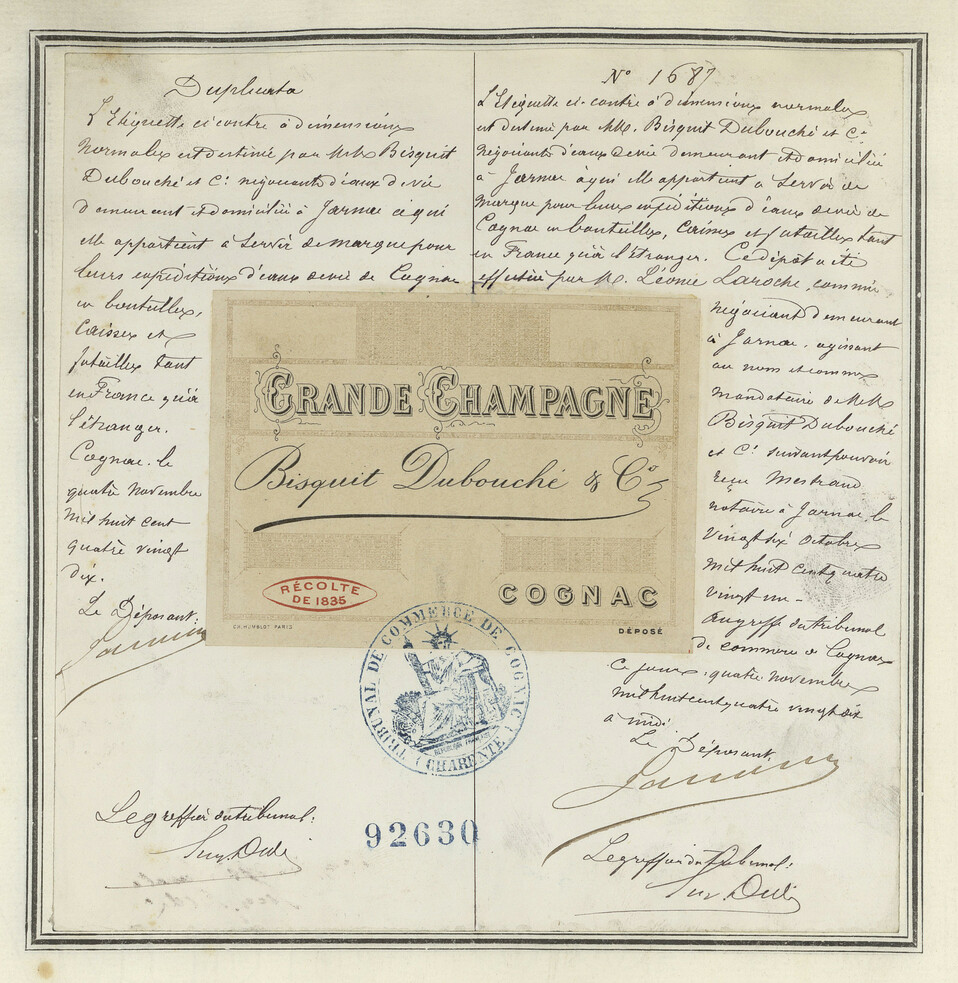 Duplicata
L'Etiquette ci contre à dimensions
Normales est destiné par MM. Bisquit
Dubouché et Cie négociants d'eaux de vie
demeurant et domiciliés à Jarnac à qui
elle appartient à servir de marque pour
leurs expéditions d'eaux de vie de Cognac
en bouteilles,
Caisses et
futailles tant
en France qu'à
l'étranger.
Cognac. le
quatre Novembre
Mil huit cent
quatre vingt
dix.
Le Déposant:
Le greffier du tribunal:
N° 1687
L'Etiquette ci-contre à dimensions normales
est destiné par MM. Bisquit Dubouché et Cie
négociants d'eaux de vie demeurant et domiciliés
à Jarnac à qui elle appartient à servir de
marque pour leurs expéditions d'eaux de vie de
Cognac en bouteilles, Caisses et futailles tant
en France qu'à l'étranger. Ce dépôt a été
effectué par M. Léonce Laroche, commis
négociant demeurant
à Jarnac. agissant
au nom et comme
mandataire de MM
Bisquit Dubouché
et Cie suivant pouvoir
reçu Mestraud
notaire à Jarnac le
vingt six Octobre
mil huit cent quatre
vingt un -
au greffe du tribunal
de commerce de Cognac
Ce jour, quatre Novembre
mil huit cent quatre vingt dix
à midi
Le Déposant,
Le greffier du Tribunal:
GRANDE CHAMPAGNE
Bisquit Dubouché & Co
RÉCOLTE
DE 1835
COGNAC
CH. HUMBLOT PARIS
DÉPOSÉ
TRIBUNAL DE COMMERCE DE COGNAC
RÉPUBLIQUE FRANÇAISE
(CHARENTE)
92630